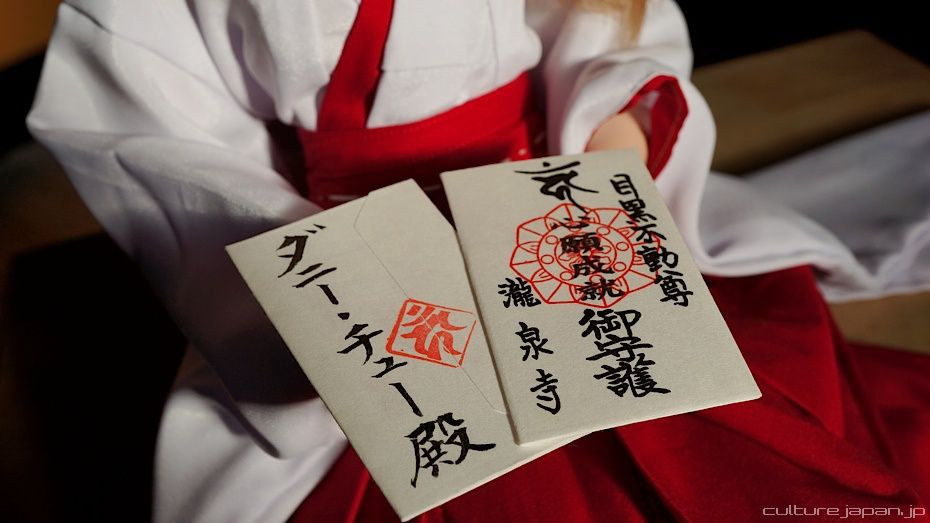 ダニー・チュー殿
目黒不動尊
心願成就
御守護
瀧泉寺
culturejapan.jp